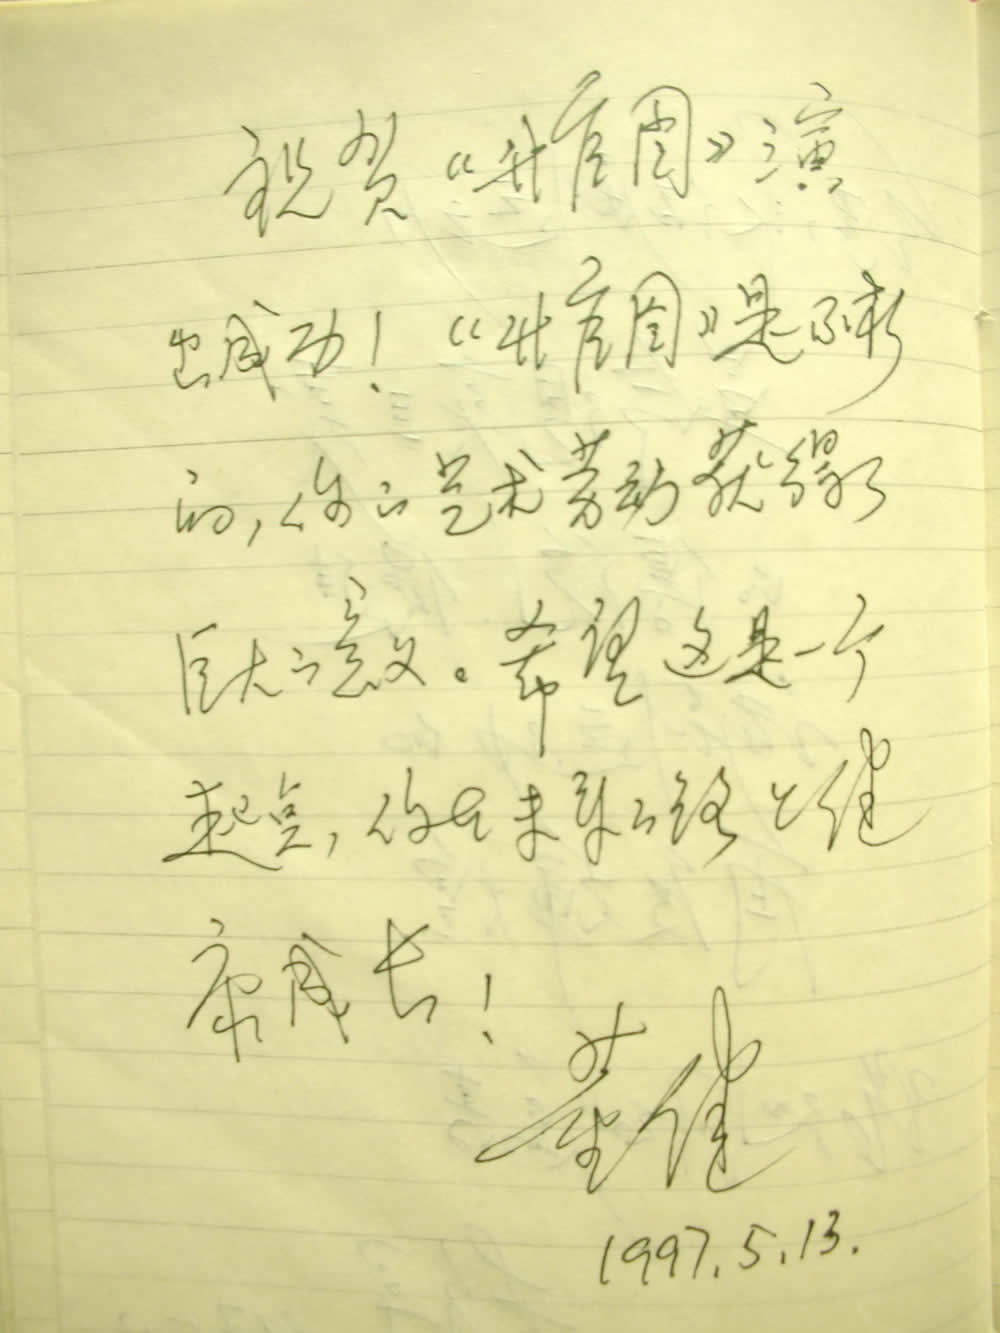 祝贺《升官图》演
出成功！《升官图》是不朽
的，你的艺术劳动获得了
巨大的意义。希望这是一个
起点，你在未来的路上健
康成长！
董健
1997.5.13.